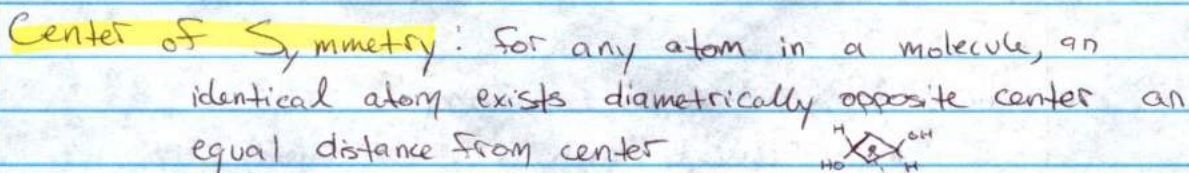 Center of Symmetry: for any atom in a molecule, an
identical atom exists diametrically opposite center an
equal distance from center
H OH
HO H